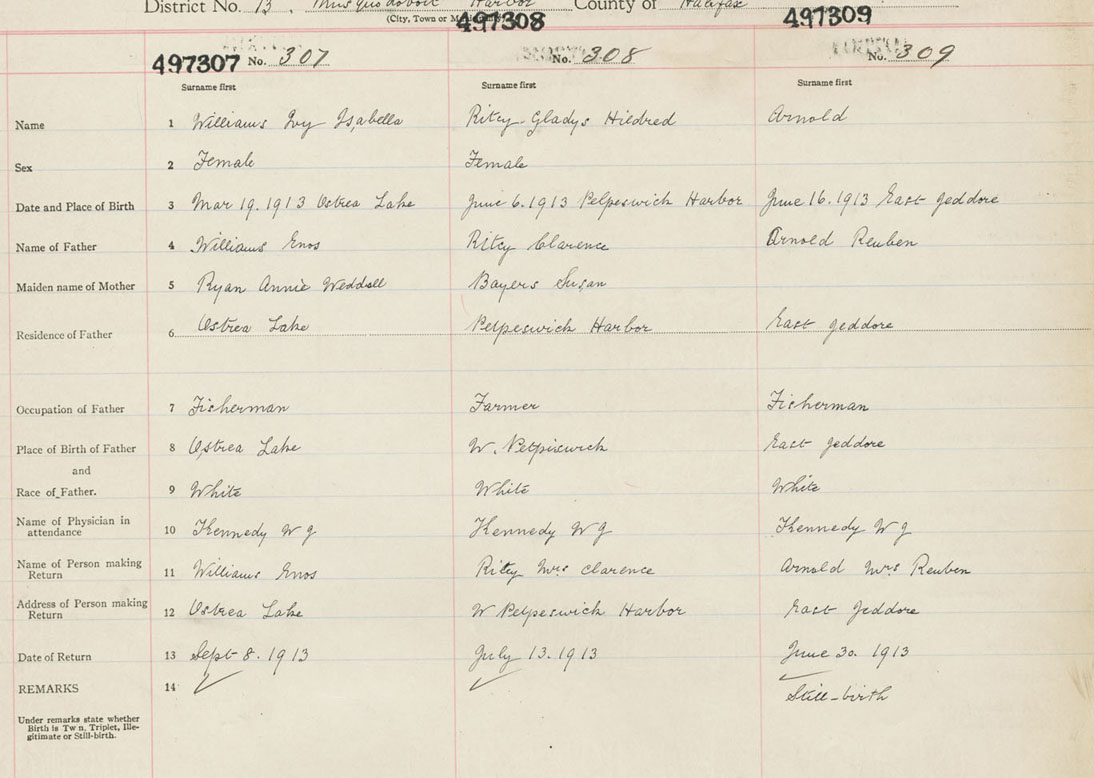 District No. 13, Musquodoboit Harbor County of Halifax
(City, Town or
497308
497309
497307 No. 307
No. 308
No. 309
Surname first Surname first Surname first
Name 1 Williams Ivy Isabella Ritcy Gladys Hildred Arnold
Sex 2 Female Female
Date and Place of Birth 3 Mar 19. 1913 Ostrea Lake June 6. 1913 Petpeswick Harbor June 16. 1913 East Jeddore
Name of Father 4 Williams Enos Ritcy Clarence Arnold Reuben
Maiden name of Mother 5 Ryan Annie Weddall Bayers Susan
Residence of Father 6 Ostrea Lake Petpeswick Harbor East Jeddore
Occupation of Father 7 Fisherman Farmer Fisherman
Place of Birth of Father 8 Ostrea Lake W. Petpiswick East Jeddore
and
Race of Father. 9 White White White
Name of Physician in
attendance 10 Kennedy W G Kennedy W G Kennedy W G
Name of Person making
Return 11 Williams Enos Ritcy Mrs Clarence Arnold Mrs Reuben
Address of Person making
Return 12 Ostrea Lake W Petpeswick Harbor East Jeddore
Date of Return 13 Sept 8. 1913 July 13. 1913 June 30. 1913
REMARKS 14 Still-birth
Under remarks state whether
Birth is Tw n, Triplet, Ille-
gitimate or Still-birth.